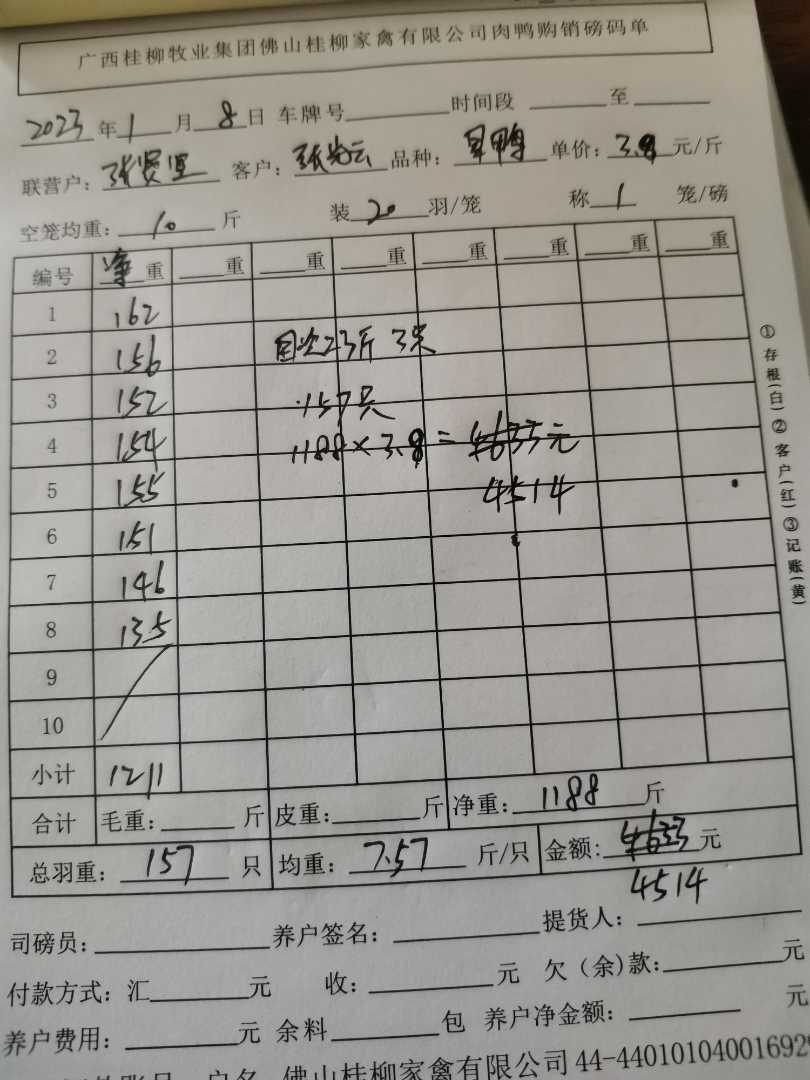 广西桂柳牧业集团佛山桂柳家禽有限公司肉鸭购销磅码单
2023年1月8日 车牌号 时间段 至
联营户: 客户: 品种: 单价: 3.8元/斤
空笼均重: 10 斤 装20羽/笼 称1笼/磅
编号 净重 重 重 重 重 重 重 重
1 162
2 156 23斤 3只
3 152 157只
4 154 1188×3.8=4633元
5 155 4514
6 151
7 146
8 135
9
10
小计 1211
合计 毛重: 斤 皮重: 斤 净重: 1188斤
总羽重: 157 只 均重: 7.57 斤/只 金额: 4633元
4514
司磅员: 养户签名: 提货人:
付款方式: 汇 元 收: 元 欠(余)款: 元
养户费用: 元 余料 包 养户净金额: 元
佛山桂柳家禽有限公司 44-44010104001692
①存根(白)②客户(红)③记账(黄)